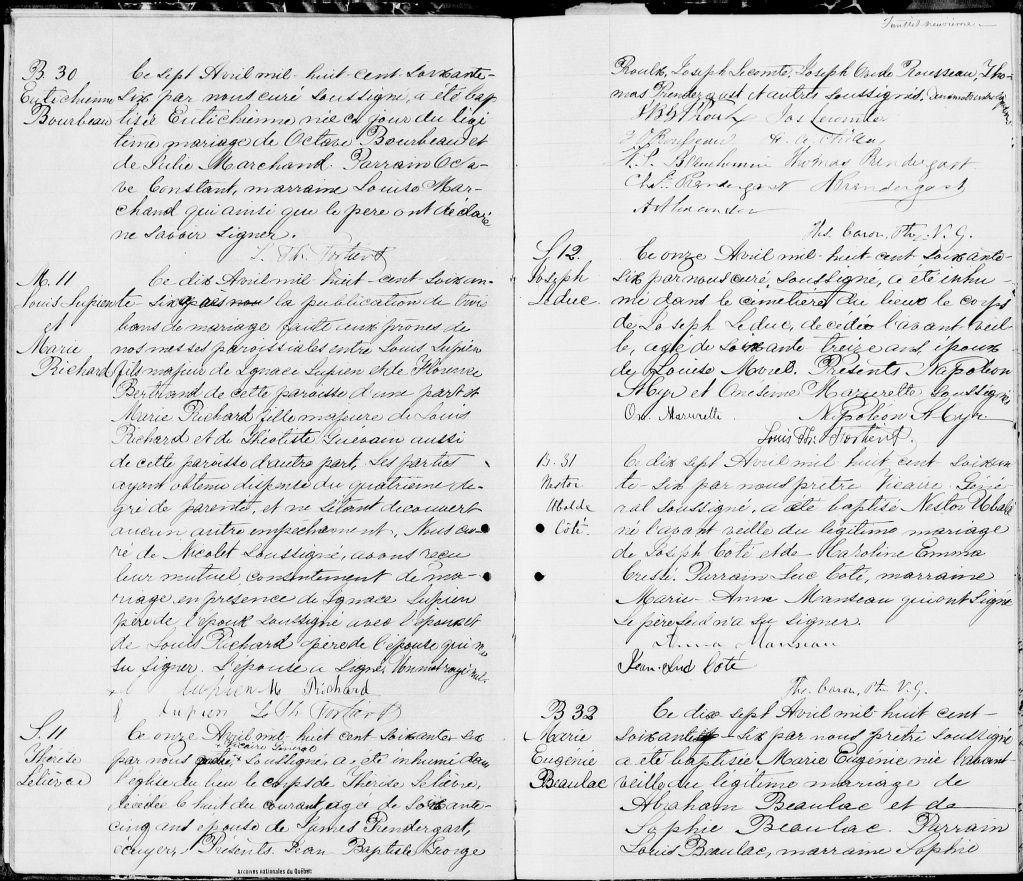 B 30
Eutichienne
Bourbeau
Ce sept Avril mil-huit-cent-soixante-
six par nous curé soussigné, a été bap
tisée Eutichienne née ce jour du légi
time mariage de Octave Bourbeau et
de Julie Marchand. Parrain Octa-
ve Constant, marraine Louise Mar-
chand qui ainsi que le père ont déclaré
ne savoir signer.
L. Th. Fortier
M. 11
Louis Lupien
et
Marie
Richard
Ce dix Avril mil-huit-cent soixan-
te-six la publication de trois
bans de mariage faite aux prônes de
nos messes paroissiales entre Louis Lupien
fils majeur de Ignace Lupien et de Florence
Bertrand de cette paroisse d'une part et
Marie Richard fille majeure de Louis
Richard et de Théotiste aussi
de cette paroisse d'autre part, les parties
ayant obtenu dispense du quatrième de-
gré de parenté, et ne s'étant découvert
aucun autre empêchement, Nous cu-
ré de Nicolet soussigné, avons reçu
leur mutuel consentement de ma-
riage en présence de Ignace Lupien
père de l'époux soussigné avec l'époux et
de Louis Richard père de l'épouse qui n'a
su signer. L'épouse a signé.
Lupien M Richard
Lupien L. Th Fortier
S. 11
Thérèse
Lelièvre
Ce onze Avril mil-huit cent soixante six
+ Vicaire Général
par nous + soussigné a été inhumé dans
l'église du lieu le corps de Thérèse Lelièvre,
décédée le huit du courant agée de soixante-
cinq ans épouse de James Prendergast,
écuyer. Présents Jean Baptiste George
Feuillet neuvième
Proulx, Joseph Lecomte, Joseph Rousseau, Tho-
mas Prendergast et autres soussignés.
JBG Proulx Jos Lecomte
Rousseau
Thomas Prendergast
Chs. Prendergast Prendergast
Ths. Caron, Ptre, V. G.
S. 12.
Joseph
Leduc.
Ce onze Avril mil-huit-cent-soixante-
six par nous curé, soussigné, a été inhu-
mé dans le cimetière du lieu le corps
de Joseph Leduc, décédé l'avant-veil
le, agé de soixante treize ans, époux
de Louise Morel. Présents Napoléon
St Cyr et Onésime Maxurette soussignés
On. Maxurette Napoléon St Cyr
Louis Th. Fortier.
B. 31
Nestor
Ubalde
Côté.
Ce dix sept Avril mil huit cent soixan
te-six par nous prêtre Vicaire Géné
ral soussigné, a été baptisé Nestor Ubalde
né l'avant veille du légitime mariage
de Joseph Côté et de Caroline Emma
Cressé. Parrain Luc Côté, marraine
Marie-Anne Manseau qui ont signé
Le père seul n'a su signer.
Anna Manseau
Jean-Luc Côté
Ths. Caron, Ptre V. G.
B 32
Marie
Eugénie
Beaulac
Ce dix sept Avril mil-huit cent-
soixante-six par nous prêtre soussigné
a été baptisée Marie Eugénie née l'avant
veille du légitime mariage de
Abraham Beaulac et de
Sophie Beaulac. Parrain
Louis Beaulac, marraine Sophie
Archives nationales du Québec